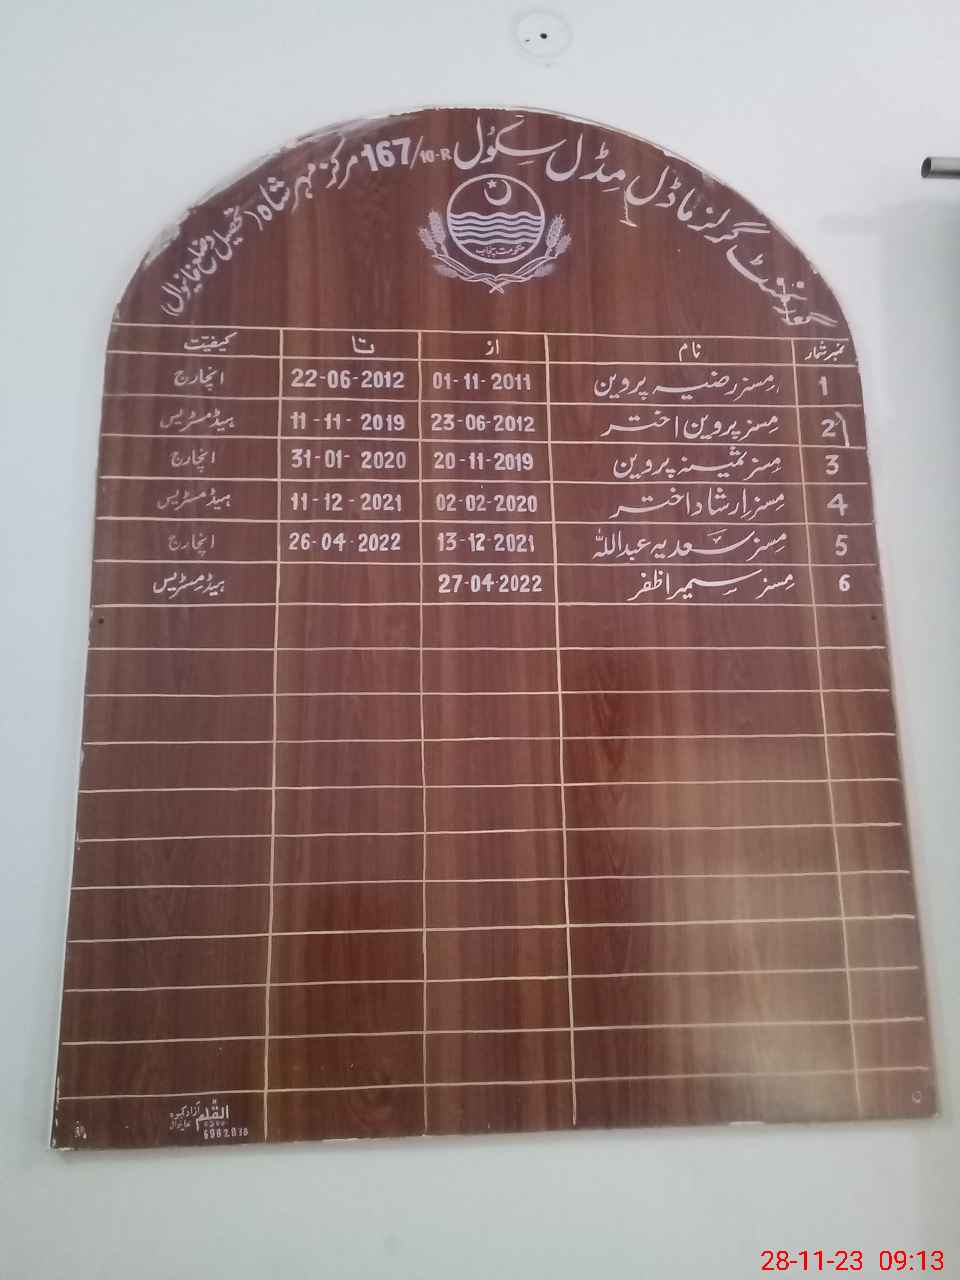 گورنمنٹ گرلز ماڈل مڈل سکول 167/10-R مرکز مہر شاہ (تحصیل و ضلع خانیوال)
حکومت پنجاب
نمبر شمار نام از تا کیفیت
1 مسز رضیہ پروین 01-11-2011 22-06-2012 انچارج
2 مسز پروین اختر 23-06-2012 11-11-2019 ہیڈ مسٹریس
3 مسز ثمینہ پروین 20-11-2019 31-01-2020 انچارج
4 مسز ارشاد اختر 02-02-2020 11-12-2021 ہیڈ مسٹریس
5 مسز سعدیہ عبداللہ 13-12-2021 26-04-2022 انچارج
6 مسز سمیرا ظفر 27-04-2022 ہیڈ مسٹریس
القلم
28-11-23 09:13